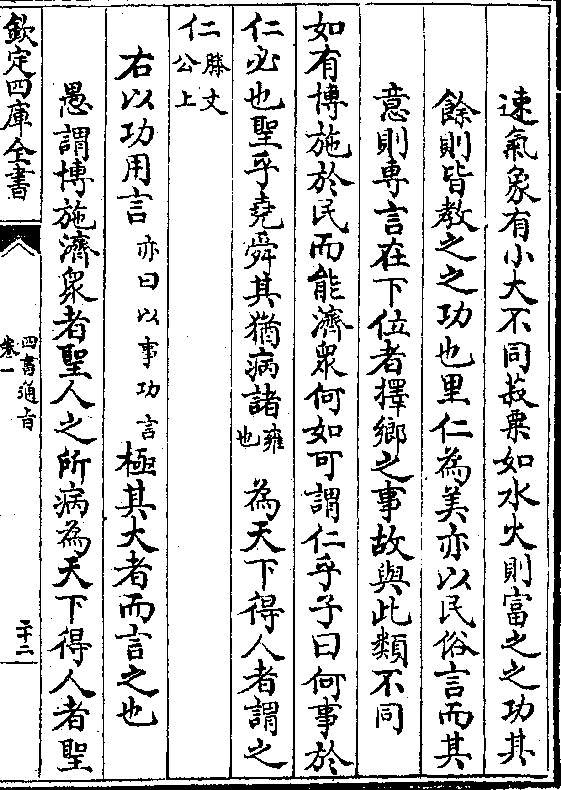 速氣象有小大不同菽粟如水火則富之之功其
餘則皆教之之功也里仁為美亦以民俗言而其
意則専言在下位者擇鄉之事故與此類不同
如有博施於民而能濟衆何如可謂仁乎子曰何事於
仁必也聖乎堯舜其猶病諸雍也 為天下得人者謂之
仁滕文公上
右以功用言亦曰以事功言極其大者而言之也
愚謂博施濟衆者聖人之所病為天下得人者聖
欽定四庫全書
四書通旨
卷一
二十二